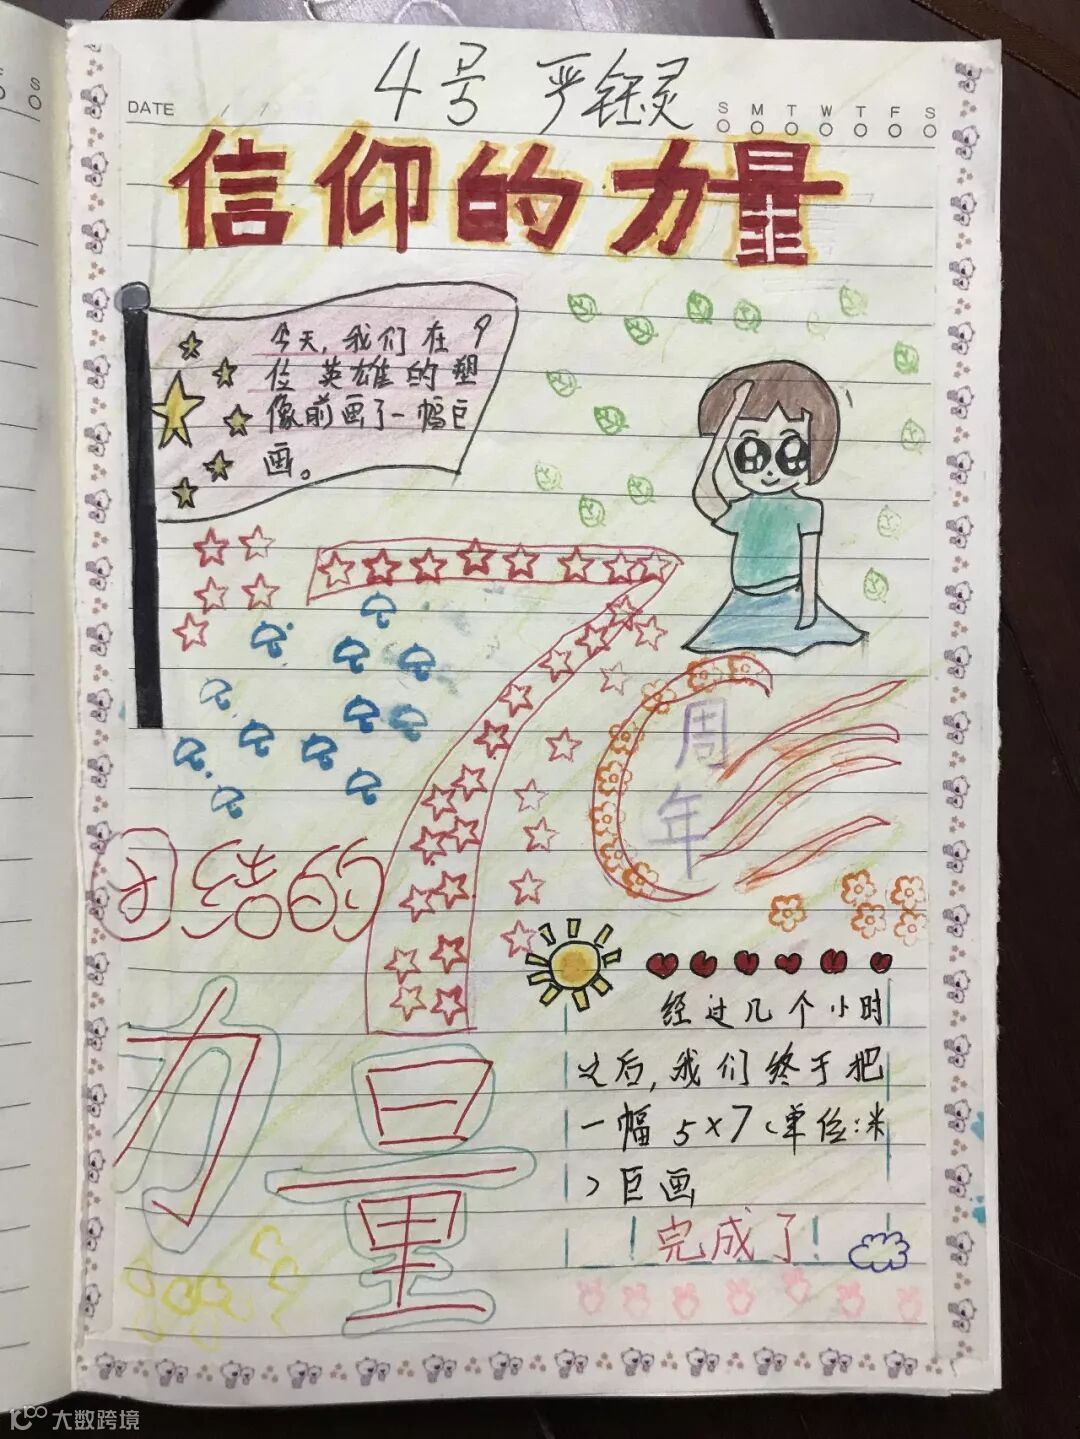 4号 严钰灵
DATE
S M T W T F S
信仰的力量
今天,我们在9
位英雄的塑
像前画了一幅巨
画。
70
周
年
团结的
力量
经过几个小时
之后,我们终于把
一幅5×7(单位:米
)巨画
!完成了!
S
大数跨境